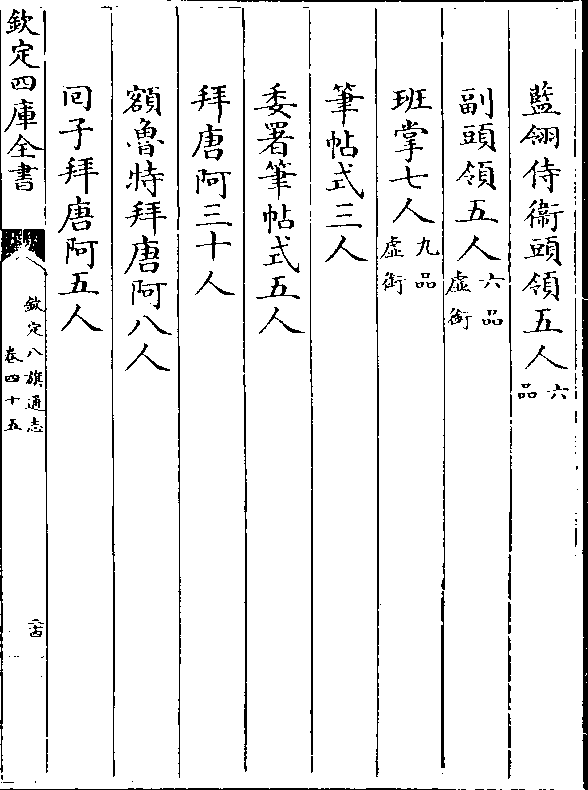 藍翎侍衞頭領五人六品
副頭領五人六品虛銜
班掌七人九品虛銜
筆帖式三人
委署筆帖式五人
拜唐阿三十人
額魯特拜唐阿八人
囘子拜唐阿五人
欽定四庫全書
欽定八旗通志
卷四十五
二十四